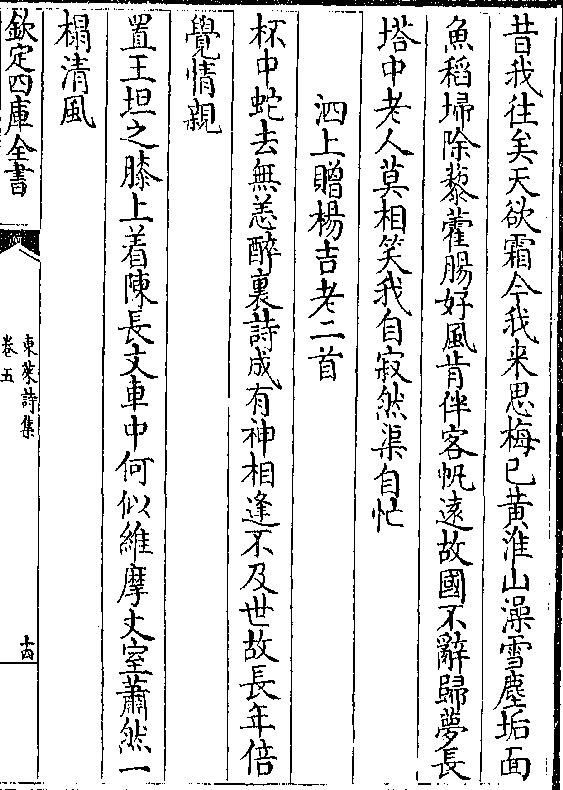 昔我往矣天欲霜今我来思梅已黄淮山澡雪塵垢面
魚稻埽除藜藿腸好風肯伴客帆遠故國不辭歸夢長
塔中老人莫相笑我自寂然渠自忙
泗上贈楊吉老二首
杯中蛇去無恙醉裏詩成有神相逢不及世故長年倍
覺情親
置王坦之膝上着陳長文車中何似維摩丈室蕭然一
榻清風
欽定四庫全書
東萊詩集
卷五
十四